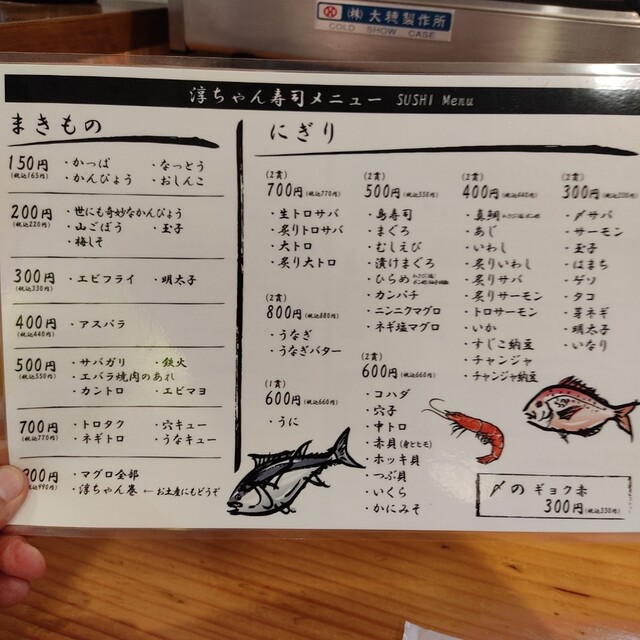 (株)大穂製作所
COLD SHOW CASE
淳ちゃん寿司メニュー SUSHI Menu
まきもの
150円(税込165円)
・かっぱ ・なっとう
・かんぴょう ・おしんこ
200円(税込220円)
・世にも奇妙なかんぴょう
・山ごぼう ・玉子
・梅しそ
300円(税込330円)
・エビフライ ・明太子
400円(税込440円)
・アスパラ
500円(税込550円)
・サバガリ ・鉄火
・エバラ焼肉のあれ
・カントロ ・エビマヨ
700円(税込770円)
・トロタク ・穴キュー
・ネギトロ ・うなキュー
900円(税込990円)
・マグロ全部
・淳ちゃん巻 ←お土産にもどうぞ
にぎり
(2貫)
700円(税込770円)
・生トロサバ
・炙りトロサバ
・大トロ
・炙り大トロ
(2貫)
800円(税込880円)
・うなぎ
・うなぎバター
(1貫)
600円(税込660円)
・うに
(2貫)
500円(税込550円)
・島寿司
・まぐろ
・むしえび
・漬けまぐろ
・ひらめ
・カンパチ
・ニンニクマグロ
・ネギ塩マグロ
(2貫)
600円(税込660円)
・コハダ
・穴子
・中トロ
・赤貝(身とヒモ)
・ホッキ貝
・つぶ貝
・いくら
・かにみそ
(2貫)
400円(税込440円)
・真鯛
・あじ
・いわし
・炙りいわし
・炙りサバ
・炙りサーモン
・トロサーモン
・いか
・すじこ納豆
・チャンジャ
・チャンジャ納豆
(2貫)
300円(税込330円)
・〆サバ
・サーモン
・玉子
・はまち
・ゲソ
・タコ
・芽ネギ
・明太子
・いなり
〆の ギョク赤
300円(税込330円)